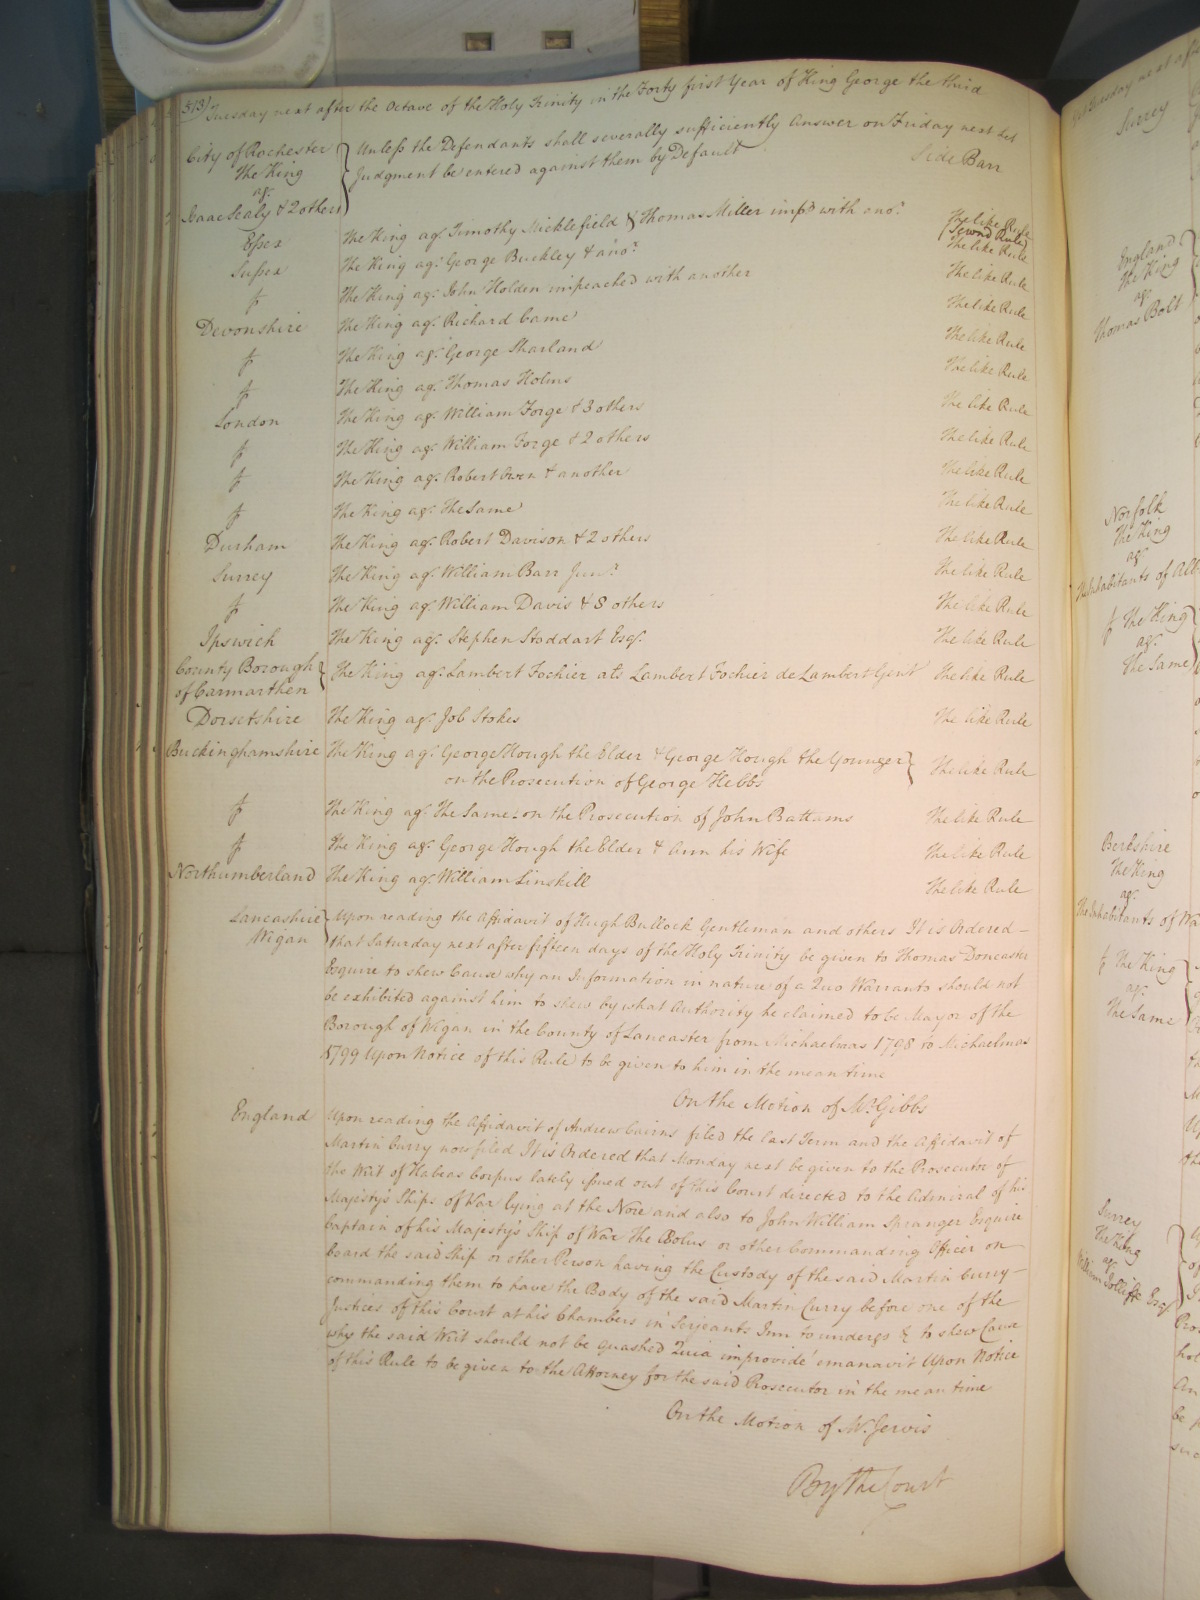 513/ Tuesday next after the Octave of the Holy Trinity in the Forty first Year of King George the third
City of Rochester
The King
agt.
Isaac Sealy & 2 others
Unless the Defendants shall severally sufficiently Answer on Friday next let
Judgment be entered against them by Default Side Barr
Essex The King agt. Timothy Micklefield & Thomas Miller impd with anor. The like Rule
(Second Rule)
Sussex The King agt. George Buckley & anor. The like Rule
fs The King agt. John Holden impeached with another The like Rule
Devonshire The King agt. Richard Came The like Rule
fs The King agt. George Sharland The like Rule
fs The King agt. Thomas Holms The like Rule
London The King agt. William Forge & 3 others The like Rule
fs The King agt. William Forge & 2 others The like Rule
fs The King agt. Robert Owen & another The like Rule
fs The King agt. The Same The like Rule
Durham The King agt. Robert Davison & 2 others The like Rule
Surrey The King agt. William Barr Junr. The like Rule
fs The King agt. William Davis & 8 others The like Rule
Ipswich The King agt. Stephen Stoddart Esqr. The like Rule
County Borough
of Carmarthen
The King agt. Lambert Fochier ats Lambert Fochier de Lambert Gent The like Rule
Dorsetshire The King agt. Job Stokes The like Rule
Buckinghamshire The King agt. George Hough the Elder & George Hough the Younger
on the Prosecution of George Hebbs The like Rule
fs The King agt. The Same on the Prosecution of John Battams The like Rule
fs The King agt. George Hough the Elder & Ann his Wife The like Rule
Northumberland The King agt. William Linskill The like Rule
Lancashire
Wigan
Upon reading the Affidavit of Hugh Bullock Gentleman and others It is Ordered
that Saturday next after fifteen days of the Holy Trinity be given to Thomas Doncaster
Esquire to shew Cause why an Information in nature of a Quo Warranto should not
be exhibited against him to shew by what Authority he claimed to be Mayor of the
Borough of Wigan in the County of Lancaster from Michaelmas 1798 to Michaelmas
1799 Upon Notice of this Rule to be given to him in the mean time
On the Motion of Mr. Gibbs
England Upon reading the Affidavit of Andrew Cairns filed the last Term and the Affidavit of
Martin Curry now filed It is Ordered that Monday next be given to the Prosecutor of
the Writ of Habeas Corpus lately issued out of this Court directed to the Admiral of his
Majesty's Ships of War lying at the Nore and also to John William Spranger Esquire
Captain of his Majesty's Ship of War The Æolus or other Commanding Officer on
board the said Ship or other Person having the Custody of the said Martin Curry
commanding them to have the Body of the said Martin Curry before one of the
Justices of this Court at his Chambers in Serjeants Inn to undergo &c to shew Cause
why the said Writ should not be quashed Quia improvide emanavit Upon Notice
of this Rule to be given to the Attorney for the said Prosecutor in the mean time
On the Motion of Mr. Jervis
By the Court
Surrey
England
The King
agt.
Thomas Bolt
Norfolk
The King
agt.
The Inhabitants of
fs The King
agt.
The Same
Berkshire
The King
agt.
The Inhabitants of
fs The King
agt.
The Same
Surrey
The King
agt.
William Jolliffe Esqr.